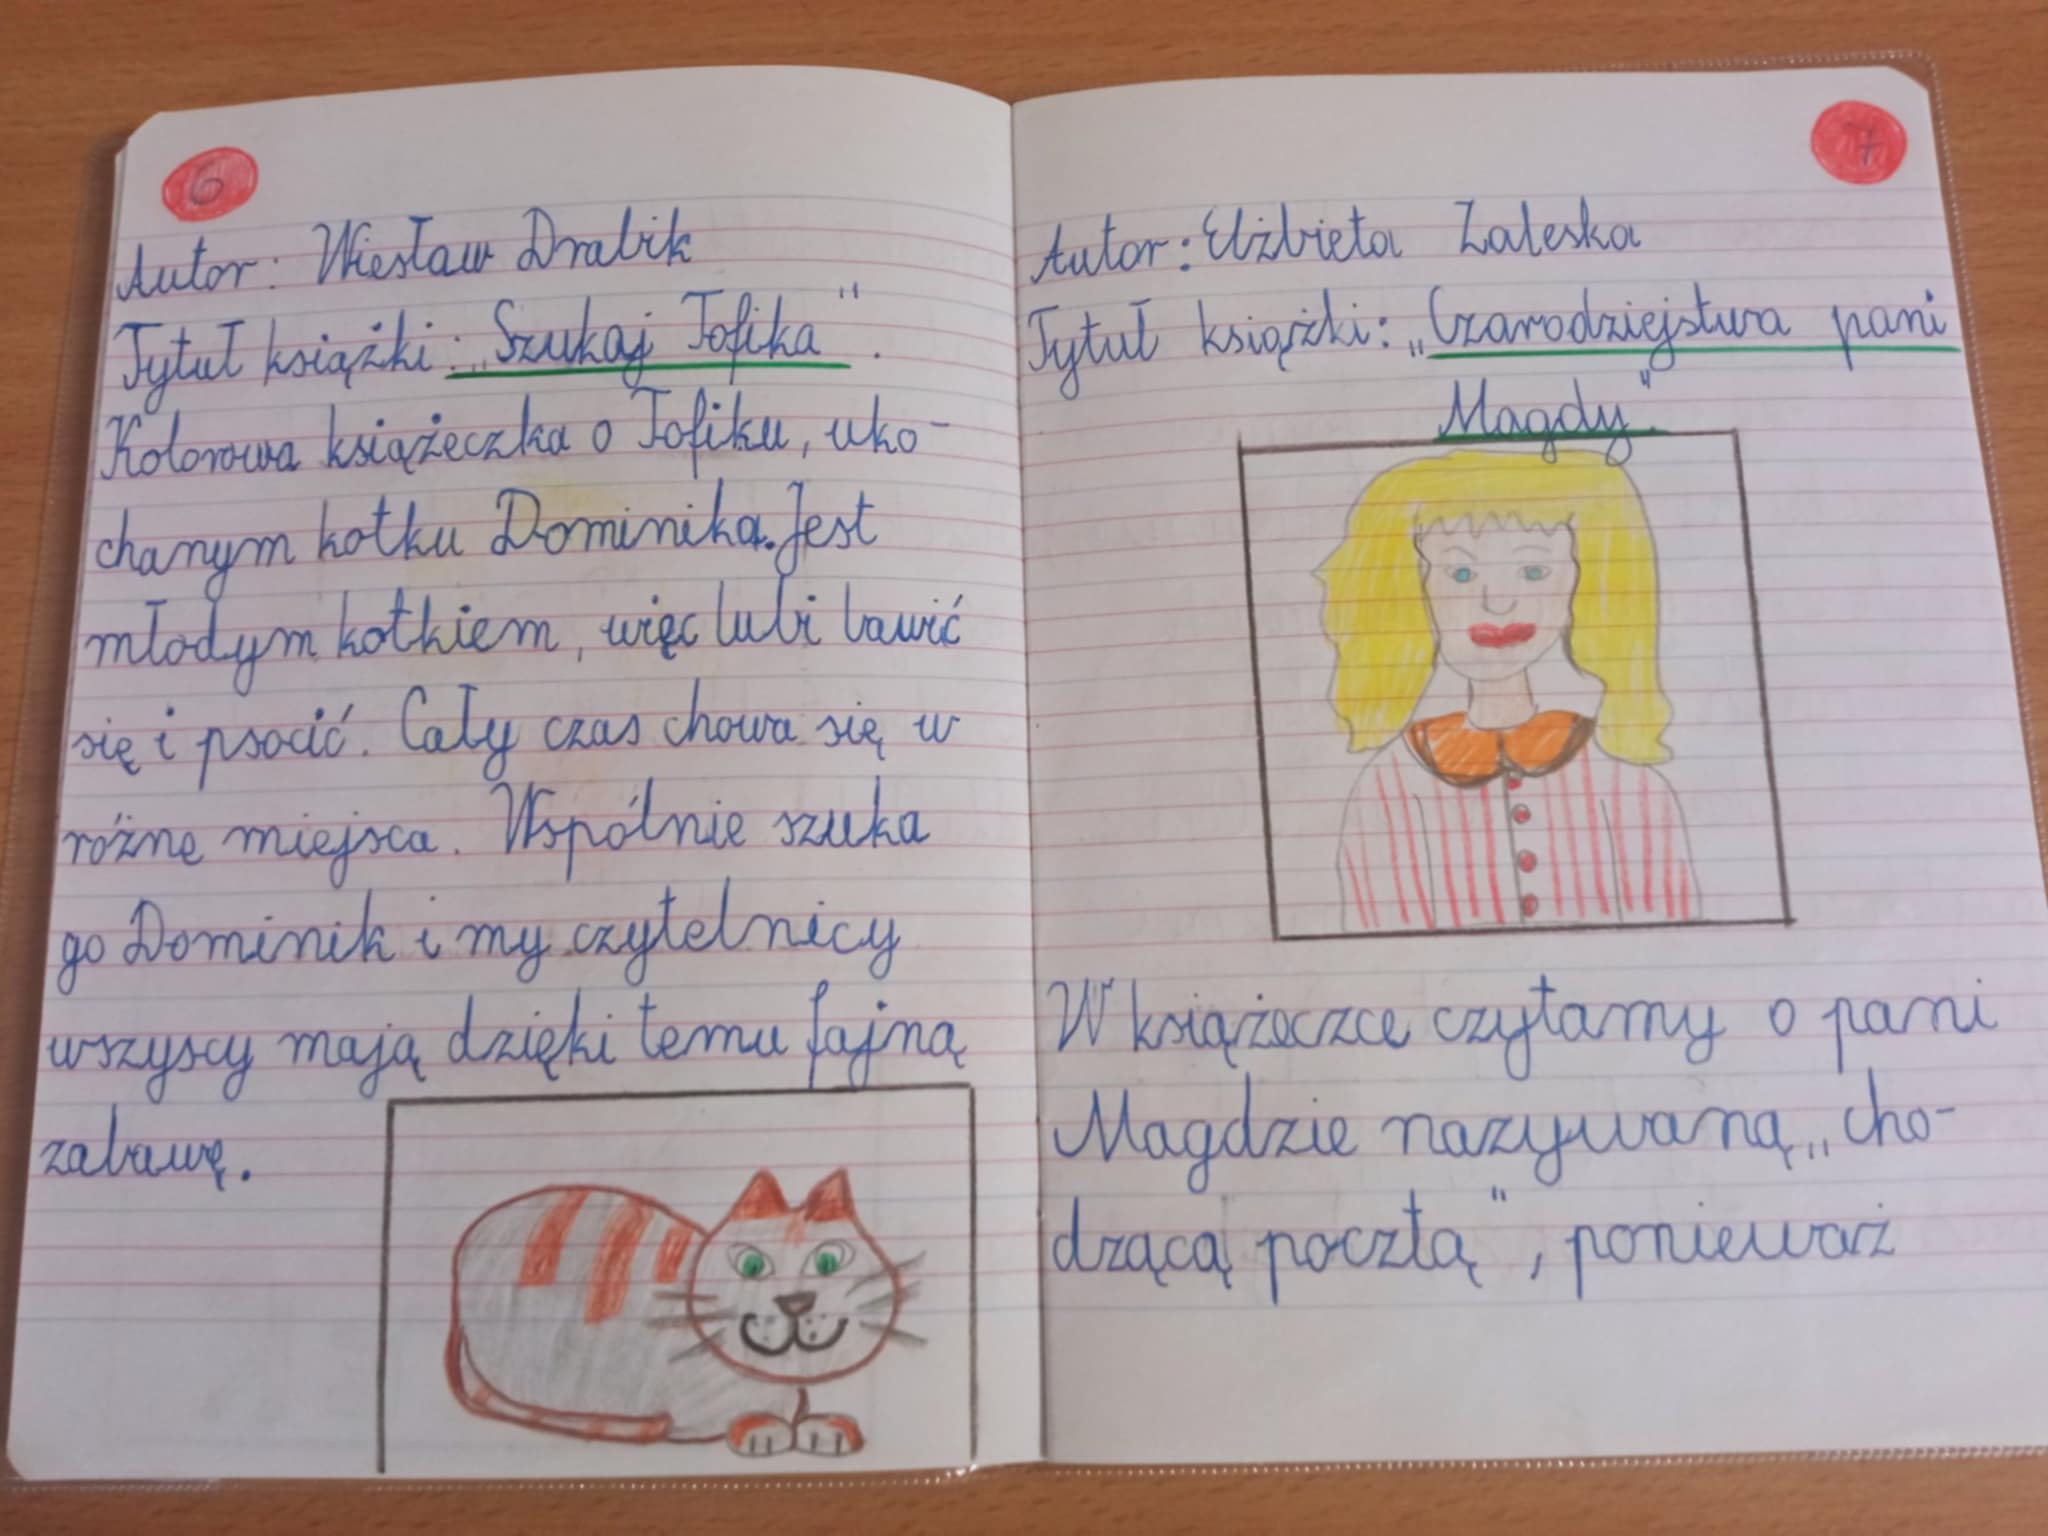 6
Autor: Wiesław Drabik
Tytuł książki: „Szukaj Tofika".
Kolorowa książeczka o Tofiku, uko-
chanym kotku Dominika. Jest
młodym kotkiem, więc lubi bawić
się i psocić. Cały czas chowa się w
różne miejsca. Wspólnie szuka
go Dominik i my czytelnicy
wszyscy mają dzięki temu fajną
zabawę.
7
Autor: Elżbieta Zaleska
Tytuł książki: „Czarodziejstwa pani
Magdy".
W książeczce czytamy o pani
Magdzie nazywaną „cho-
dzącą pocztą", ponieważ